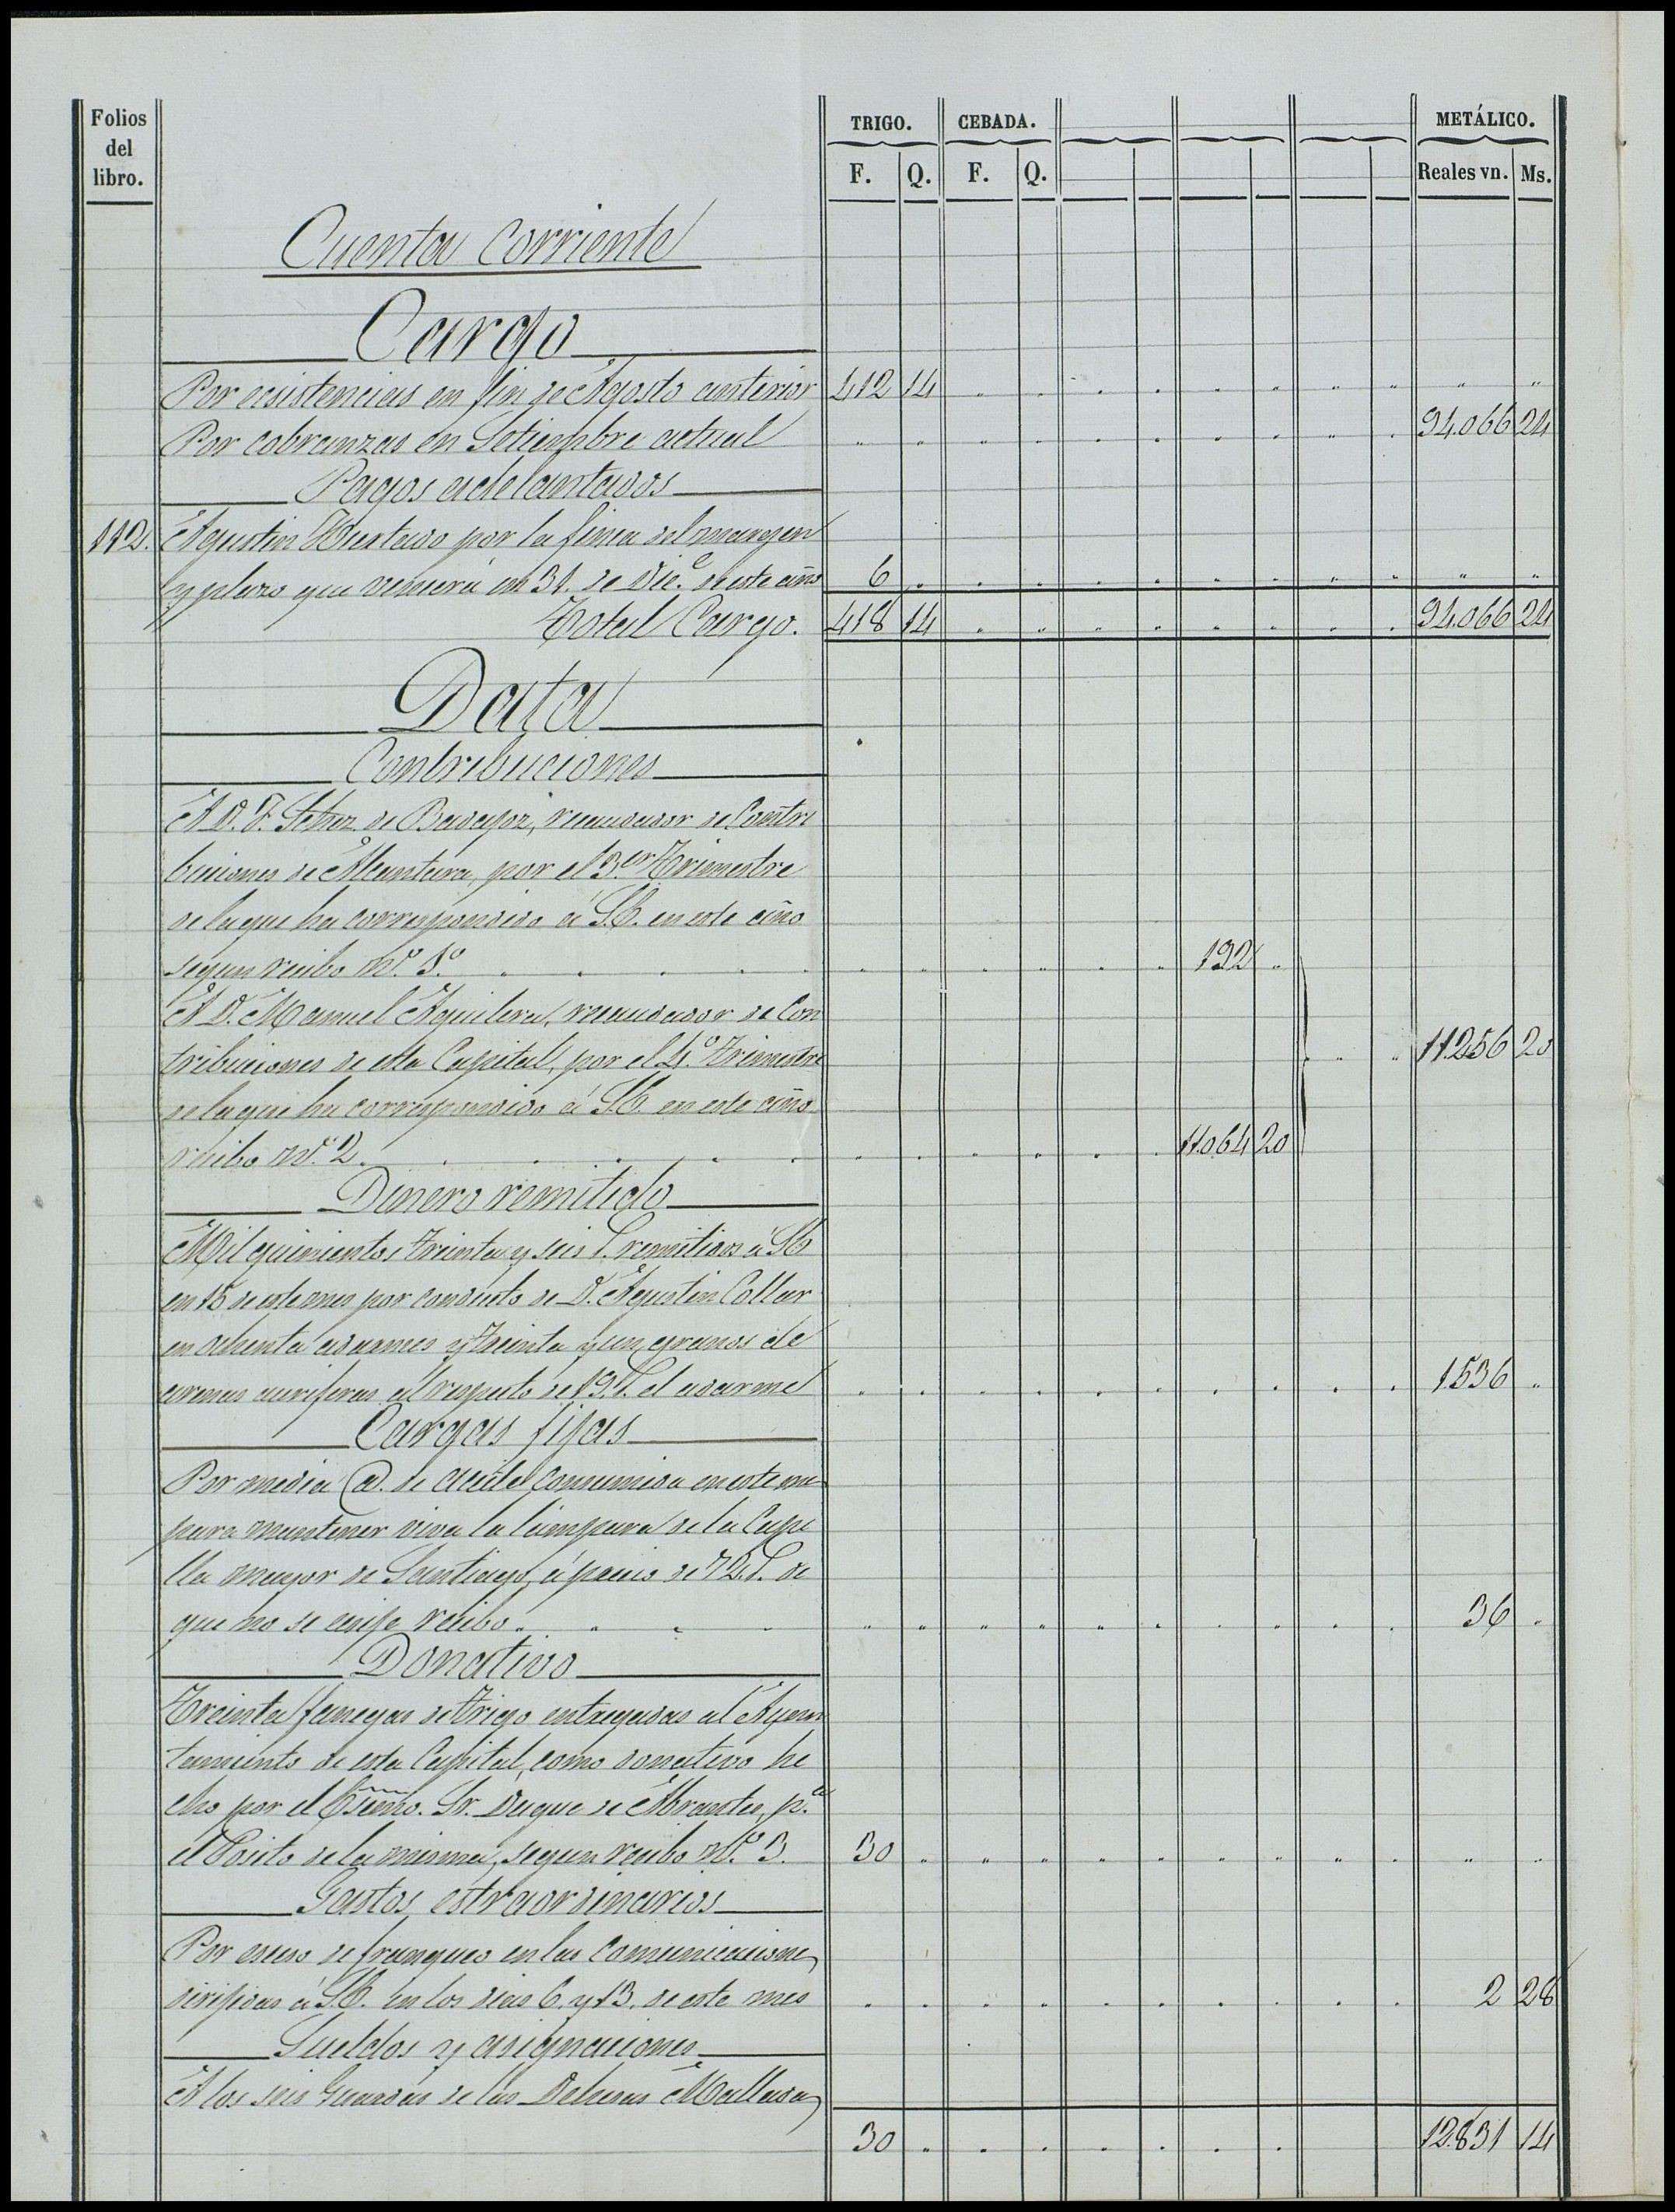 Folios del libro. TRIGO. CEBADA. METÁLICO.
F. Q. F. Q. Reales vn. Ms.
Cuenta corriente
Cargo
Por ecsistencias en fin de Agosto anterior 412 14 " "
Por cobranzas en Setiembre actual " " 94.066 24
Pagos adelantados
112. Agustin Hurtado por la finca del margen
y plazo que vencerá en 31. de Dic.e de este año 6 " " "
Total Cargo. 418 14 94.066 24
Data
Contribuciones
A D. F. de Badajoz, recaudador de Contri
buciones de Alcantara, por el 3.er Trimestre
de la que ha correspondido á S.E. en este año
segun recibo n.º 1.º 192 "
A D. Manuel Aguilera, recaudador de Con
tribuciones de esta Capital, por el 4.º trimestre 11.256 20
de la que ha correspondido á S.E. en este año
recibo n.º 2. 11.064 20
Dinero remitido
Mil quinientos treinta y seis r. remitidos á S.E.
en 15 de este mes por conducto de D. Agustin Collar
en ochenta adarmes y treinta y un granos de
arenas auriferas al respecto de 19. r. el adarme 1.536 "
Cargas fijas
Por media @. de aceite consumida en este me
para mantener viva la lámpara de la Capi
lla mayor de Santiago, á precio de 72. r. de
que no se exije recibo. 36 "
Donativo
Treinta fanegas de trigo entregadas al Ayun
tamiento de esta Capital, como donativo he
cho por el Escmo. Sr. Duque de Abrantes, p.a
el Pósito de la misma, segun recibo n.º 3. 30 " " "
Gastos estraordinarios
Por esceso de franqueo en las comunicaciones
dirijidas á S.E. en los dias 6. y 13. de este mes 2 28
Sueldos y asignaciones
A los seis Guardas de las Dehesas Mallada,
30 " 12.831 14